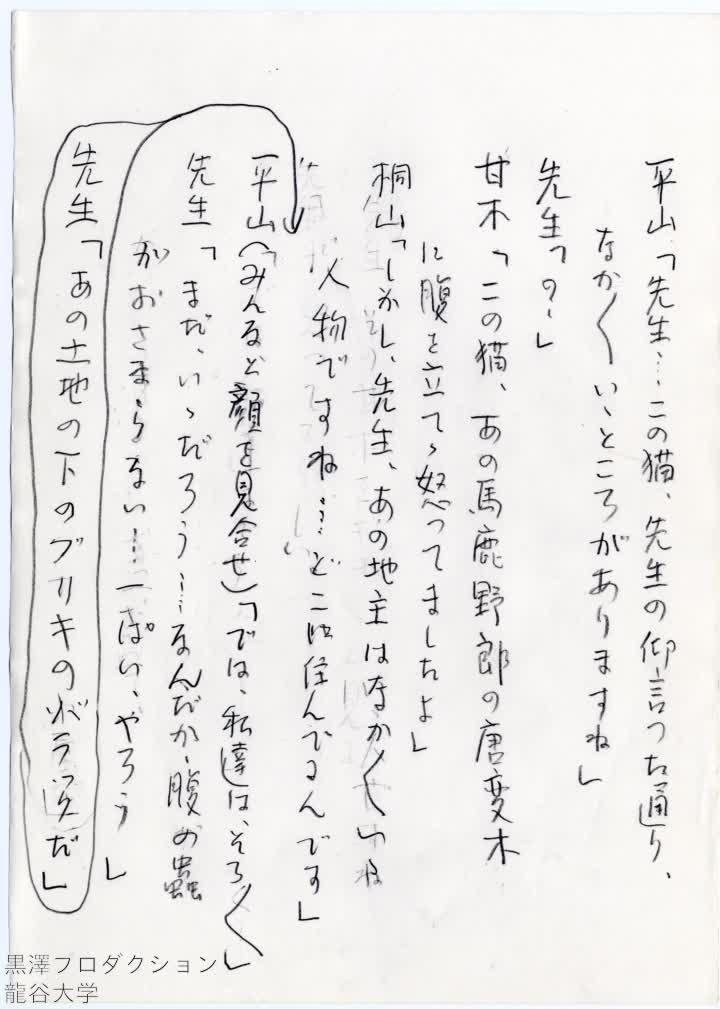 平山「先生…この猫、先生の仰言つた通り、
なか〳〵いゝところがありますね」
先生「の、」
甘木「この猫、あの馬鹿野郎の唐変木
に腹を立てゝ怒ってましたよ」
桐山「しかし、先生、あの地主はなか〳〵いゝ
人物ですね…どこに住んでるんです」
平山（みんなと顔を見合せ）「では、私達は、そろ〳〵」
先生「まだ、いゝだろう…なんだか腹の蟲
がおさまらない…一ぱい、やろう」
先生「あの土地の下のブリキのボラ沢だ」
黒澤プロダクション
龍谷大学